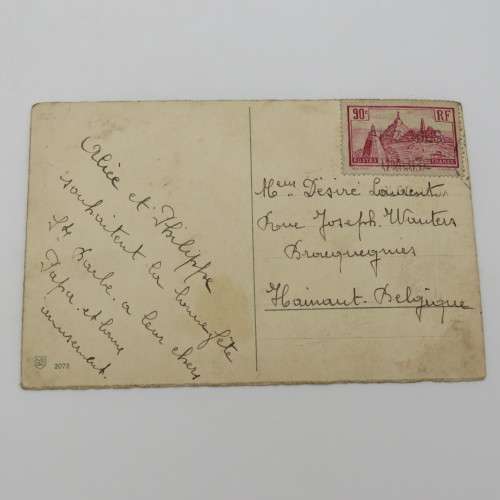 Alice et Philippe
souhaitent la bonne fête
Ste Barbe. a leur chers
Papa. et bons
amusement.
2073
90c RF
POSTES FRANCE
Désiré Laurent
Rue Joseph. Wauters
Bracquegnies
Hainaut. Belgique